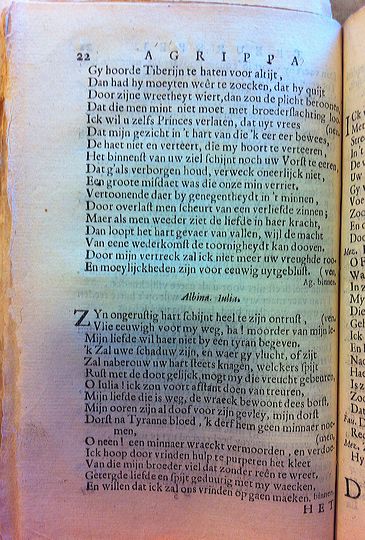 22 AGRIPPA
Gy hoorde Tiberijn te haten voor altijt,
Dan had hy moeyten weêr te zoecken, dat hy quijt
Door zijne wreetheyt wiert, dan zou de plicht betoonen,
Dat die men mint niet moet met broederslachting loo-
Ick wil u zelfs Princes verlaten, dat uyt vrees (nen,
Dat mijn gezicht in 't hart van die 'k eer eer bewees,
De haet niet en verteert, die my hoort te verteeren,
Het binnenst van uw ziel schijnt noch uw Vorst te eeren,
Dat g'als verborgen houd, verweck oneerlijck niet,
Een groote misdaet was die onze min verriet,
Vertoonende daer by genegentheydt in 't minnen,
Door overlast men scheurt van een verliefde zinnen;
Maer als men weeder ziet de liefde in haer kracht,
Dan loopt het hart gevaer van vallen, wijl de macht
Van eene wederkomst de toornigheydt kan dooven.
Door mijn vertreck zal ick niet meer uw vreughde roo-
En moeylijckheden zijn voor eeuwig uytgeblust. (ven,
Ag. binnen.
Albina. Iulia.
ZYn ongerustig hart schijnt heel te zijn ontrust, (ven,
Vlie eeuwigh voor my weg, ha! moorder van mijn le-
Mijn liefde wil haer niet by een tyran begeven.
'k Zal uwe schaduw zijn, en waer gy vlucht, of zijt
Zal naberouw uw hart steets knagen, welckers spijt
Rust met de doot gelijck, mogt my die vreucht gebeuren,
O Iulia! ick zon voort afstant doen van treuren,
Mijn liefde die is weg, de wraeck bewoont dees borst,
Mijn ooren zijn al doof voor zijn gevley, mijn dorst
Dorst na Tyranne bloed, 'k derf hem geen minnaer noe-
men, (men,
O neen! een minnaer wraeckt vermoorden, en verdoe-
Ick hoop door vrinden hulp te purperen het kleet
Van die mijn broeder viel dat zonder reên te wreet,
Getergde liefde en spijt geduurig met my waecken,
En willen dat ick zal ons vrinden op gaen maeken, binnen.
HET